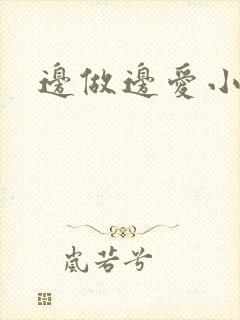 邊做邊愛小
嵐若兮